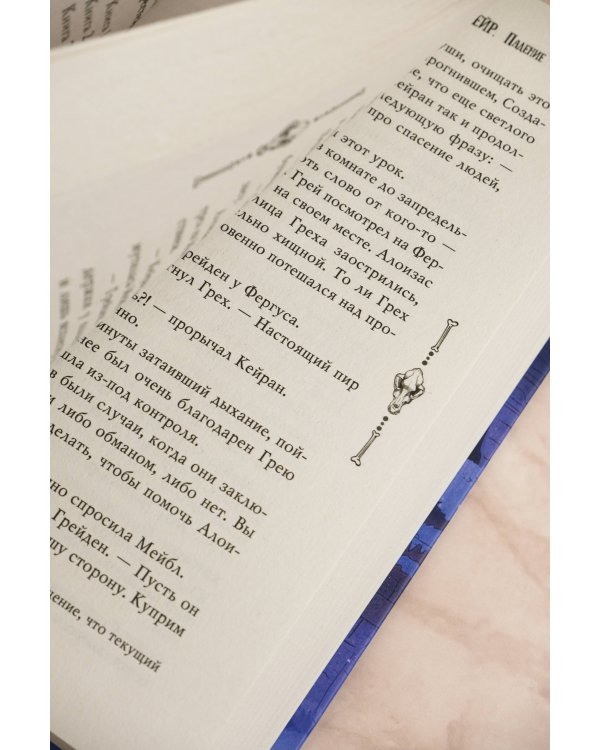 ЕЙР. ПАДЕНИЕ
уши, очищать это
рогнившем, Созда-
е, что еще светлого
ейран так и продол-
едующую фразу: —
про спасение людей,
этот урок.
комнате до запредель-
ть слово от кого-то —
Грей посмотрел на Фер-
на своем месте. Алоизас
лица Греха заострились,
льно хищной. То ли Грех
овенно потешался над про-
рейден у Фергуса.
нул Грех. — Настоящий пир
ь?! — прорычал Кейран.
но.
инуты затаивший дыхание, пой-
нее был очень благодарен Грею
ла из-под контроля.
в были случаи, когда они заклю-
и либо обманом, либо нет. Вы
делать, чтобы помочь Алои-
но спросила Мейбл.
Грейден. — Пусть он
шу сторону. Куприм
чение, что текущий